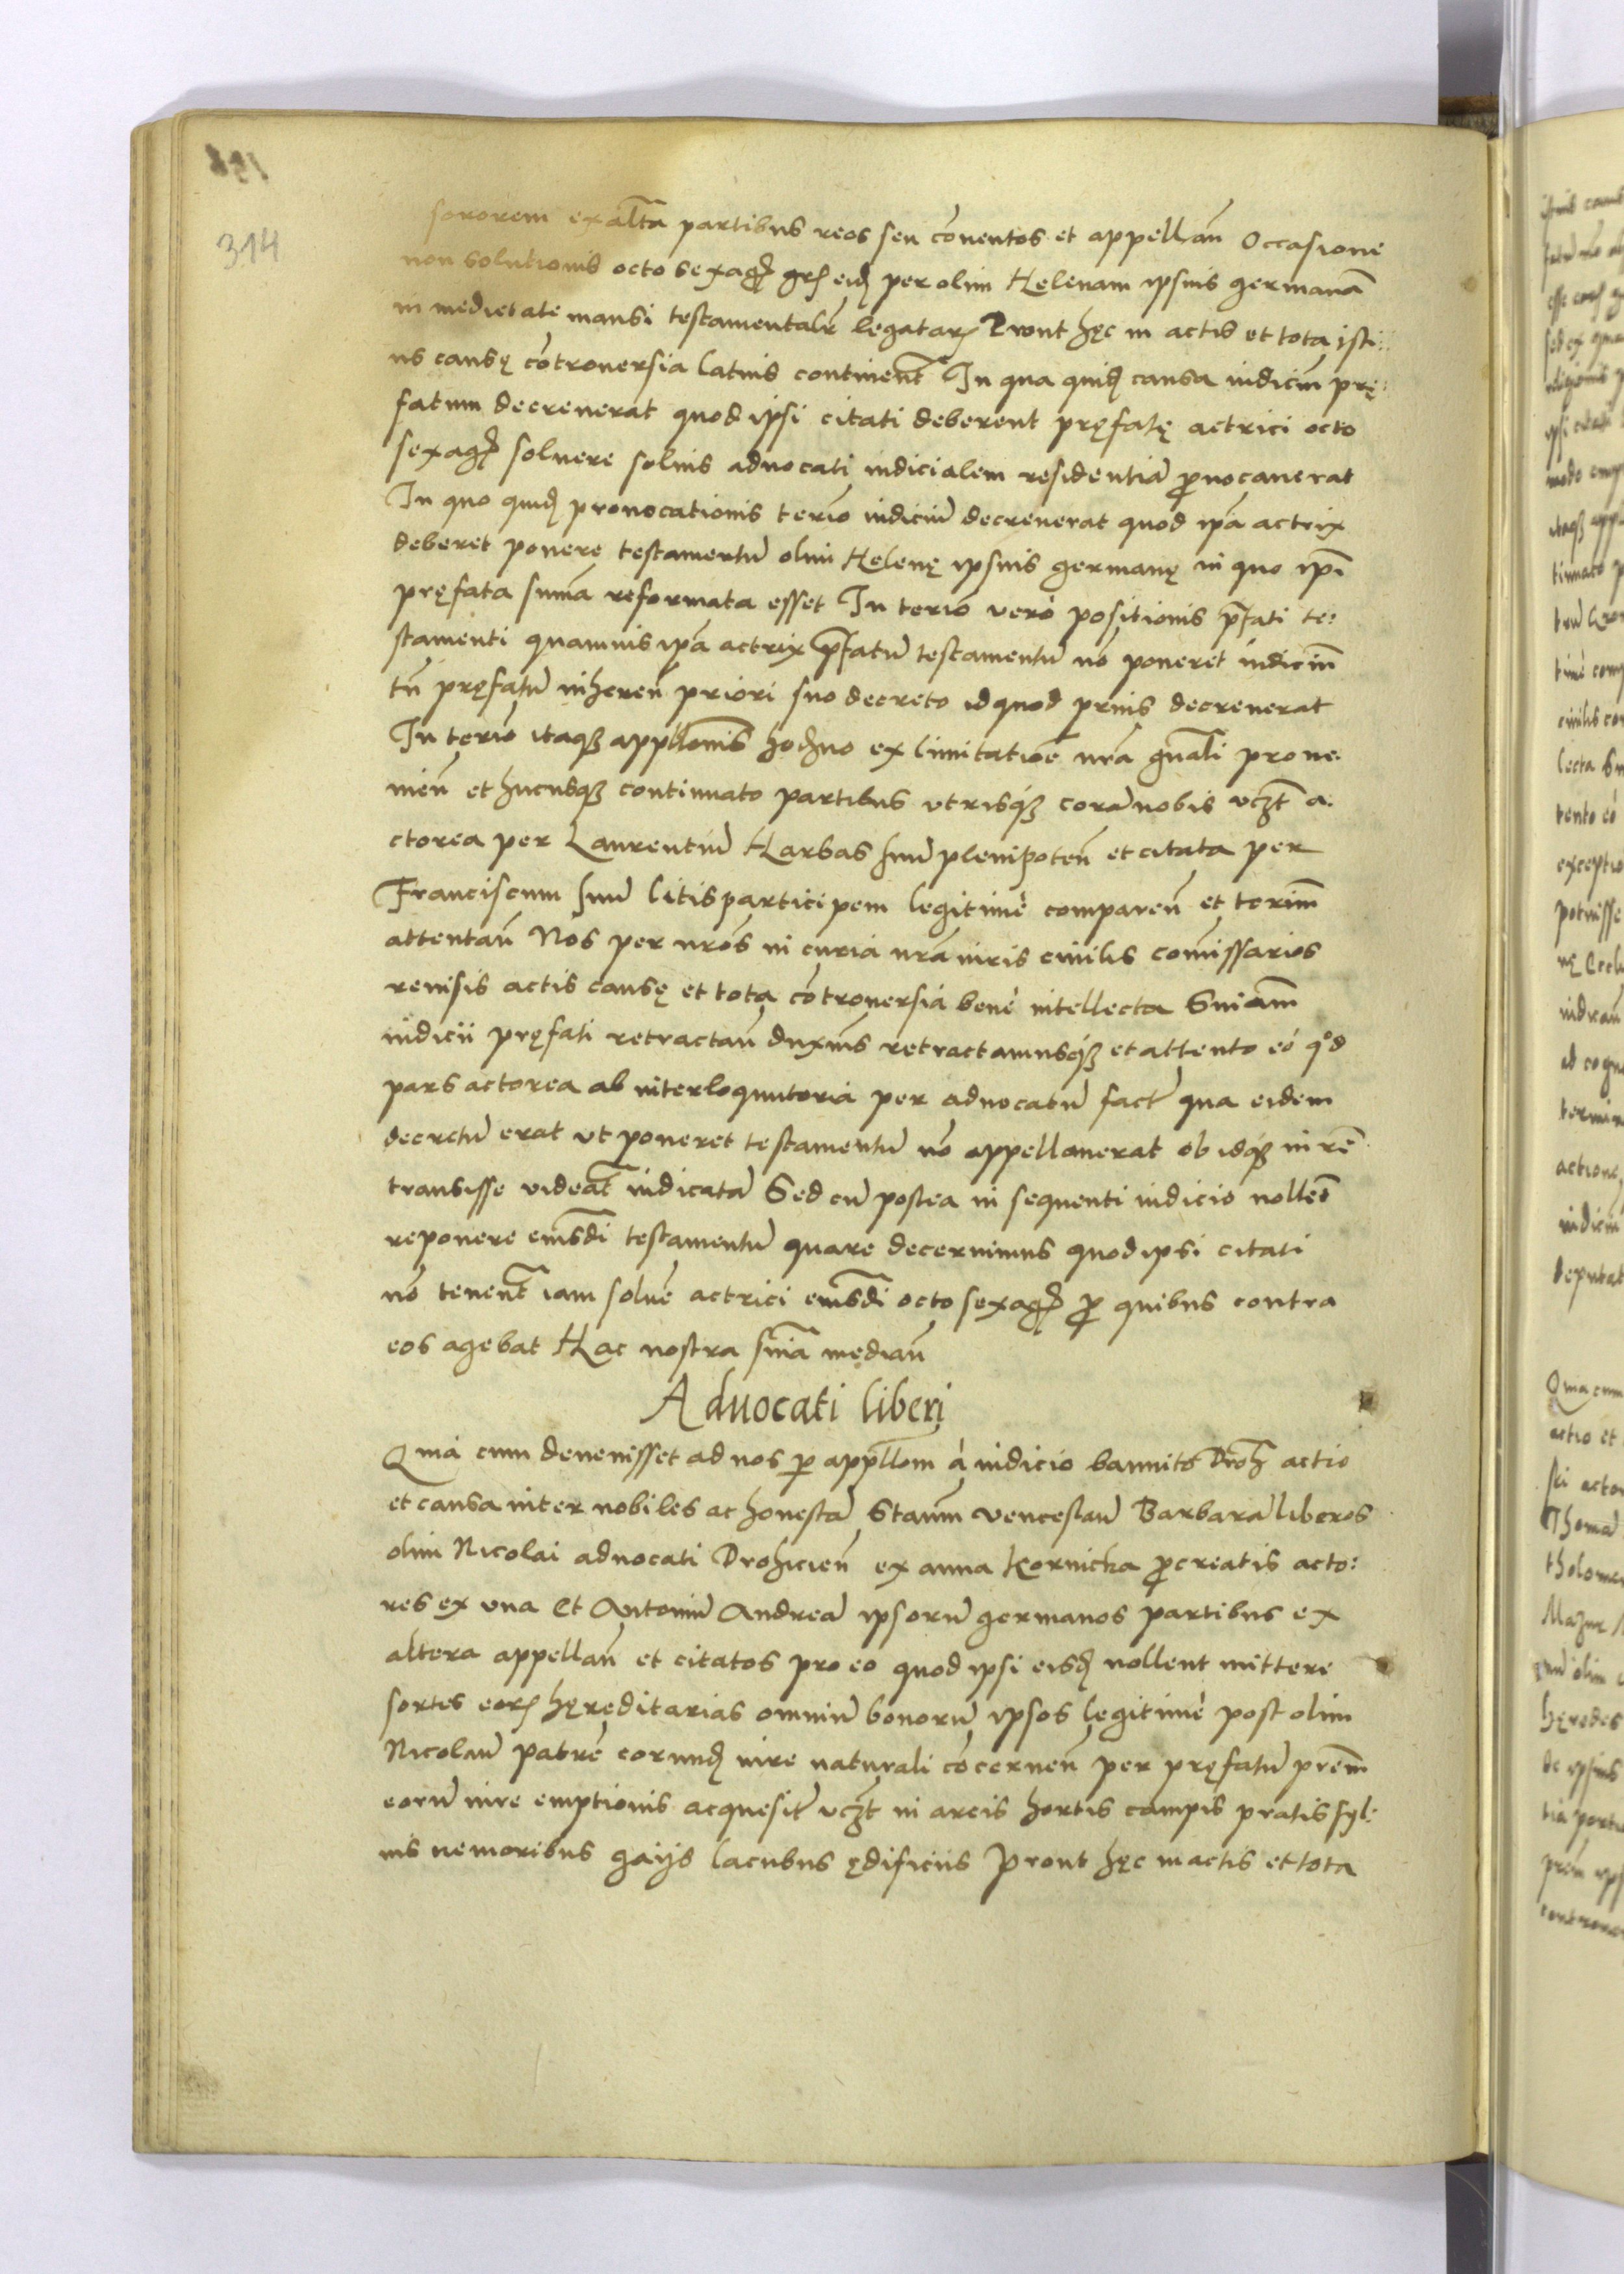 314
sororem ex altã partibus reos seu cõuentos et appellañ Occasione
non solutionis octo sexagẽ gros eidẽ per olim Helenam ipsius germanã
in medietate mansi testamentalr̃ legatarũ Prout hęc in actis et tota isti:
us causę cõtrouersia latius continent̃ In qua quidẽ causa iudiciũ prę:
fatum decreuerat quod ipsi citati deberent pręfatę actrici octo
sexagẽ soluere solius aduocati iudicialem residentiã ꝓuocauerat
In quo quidẽ prouocationis terĩo iudiciũ decreuerat quod ip̃a actrix
deberet ponere testamentũ olim Helenę ipsius germanę in quo ip̃i
pręfata sum̃a reformata esset In terĩo verò positionis p̃fati te:
stamenti quamuis ip̃a actrix p̃fatũ testamentũ nõ poneret iudiciũ
tñ pręfatũ inhereñ priori suo decreto id quod prius decreuerat
In terĩo itaqꝫ app̃llonis hod̃no ex limitatiõe nr̃a gñali proue
nieñ et hucusqꝫ continuato partibus vtrisqꝫ corã nobis vcꝫt a:
ctorea per Laurentiũ Harbas suũ plenipoteñ et citata per
Franciscum suũ litis participem legitimè compareñ et terĩm
attentañ Nos per nr̃os in curia nr̃a iuris ciuilis comĩssarios
reuisis actis causę et tota cõtrouersia benè intellecta Sniam̃
iudicii pręfati retractañ duxim̃s retractamusqꝫ et attento eò qͦd
pars actorea ab interloquutoria per aduocatũ fact̃ qua eidem
decretũ erat vt poneret testamentũ nõ appellauerat ob idqꝫ in rẽ
transisse videat̃ iudicatã Sed cũ postea in sequenti iudicio nollet
reponere eiusd̃i testamentũ quare decernimus quod ipsi citati
nõ tenent̃ iam soluẽ actrici eiusd̃i octo sexagẽ ꝓ quibus contra
eos agebat Hac nostra sñia mediañ
Aduocati liberi
Quia cum deuenisset ad nos ꝑ app̃llom à iudicio bannito Droh̃ actio
et causa inter nobiles ac honestã Stanm̃ Venceslaũ Barbarã liberos
olim Nicolai aduocati Drohicień ex anna Kornicka ꝓcreatis acto:
res ex vna Et Antoniũ Andreã ipsorũ germanos partibus ex
altera appellañ et citatos pro eo quod ipsi eisdẽ nollent mittere
sortes eorũ hęreditarias omniũ bonorũ ipsos legitimè post olim
Nicolaũ patrẽ eorundẽ iure naturali cõcerneñ per pręfatũ prem̃
eorũ iure emptionis acquesit̃ vcꝫt in areis hortis campis pratis syl:
uis nemoribus gaijs lacubus ędificiis Prout hęc in actis et tota